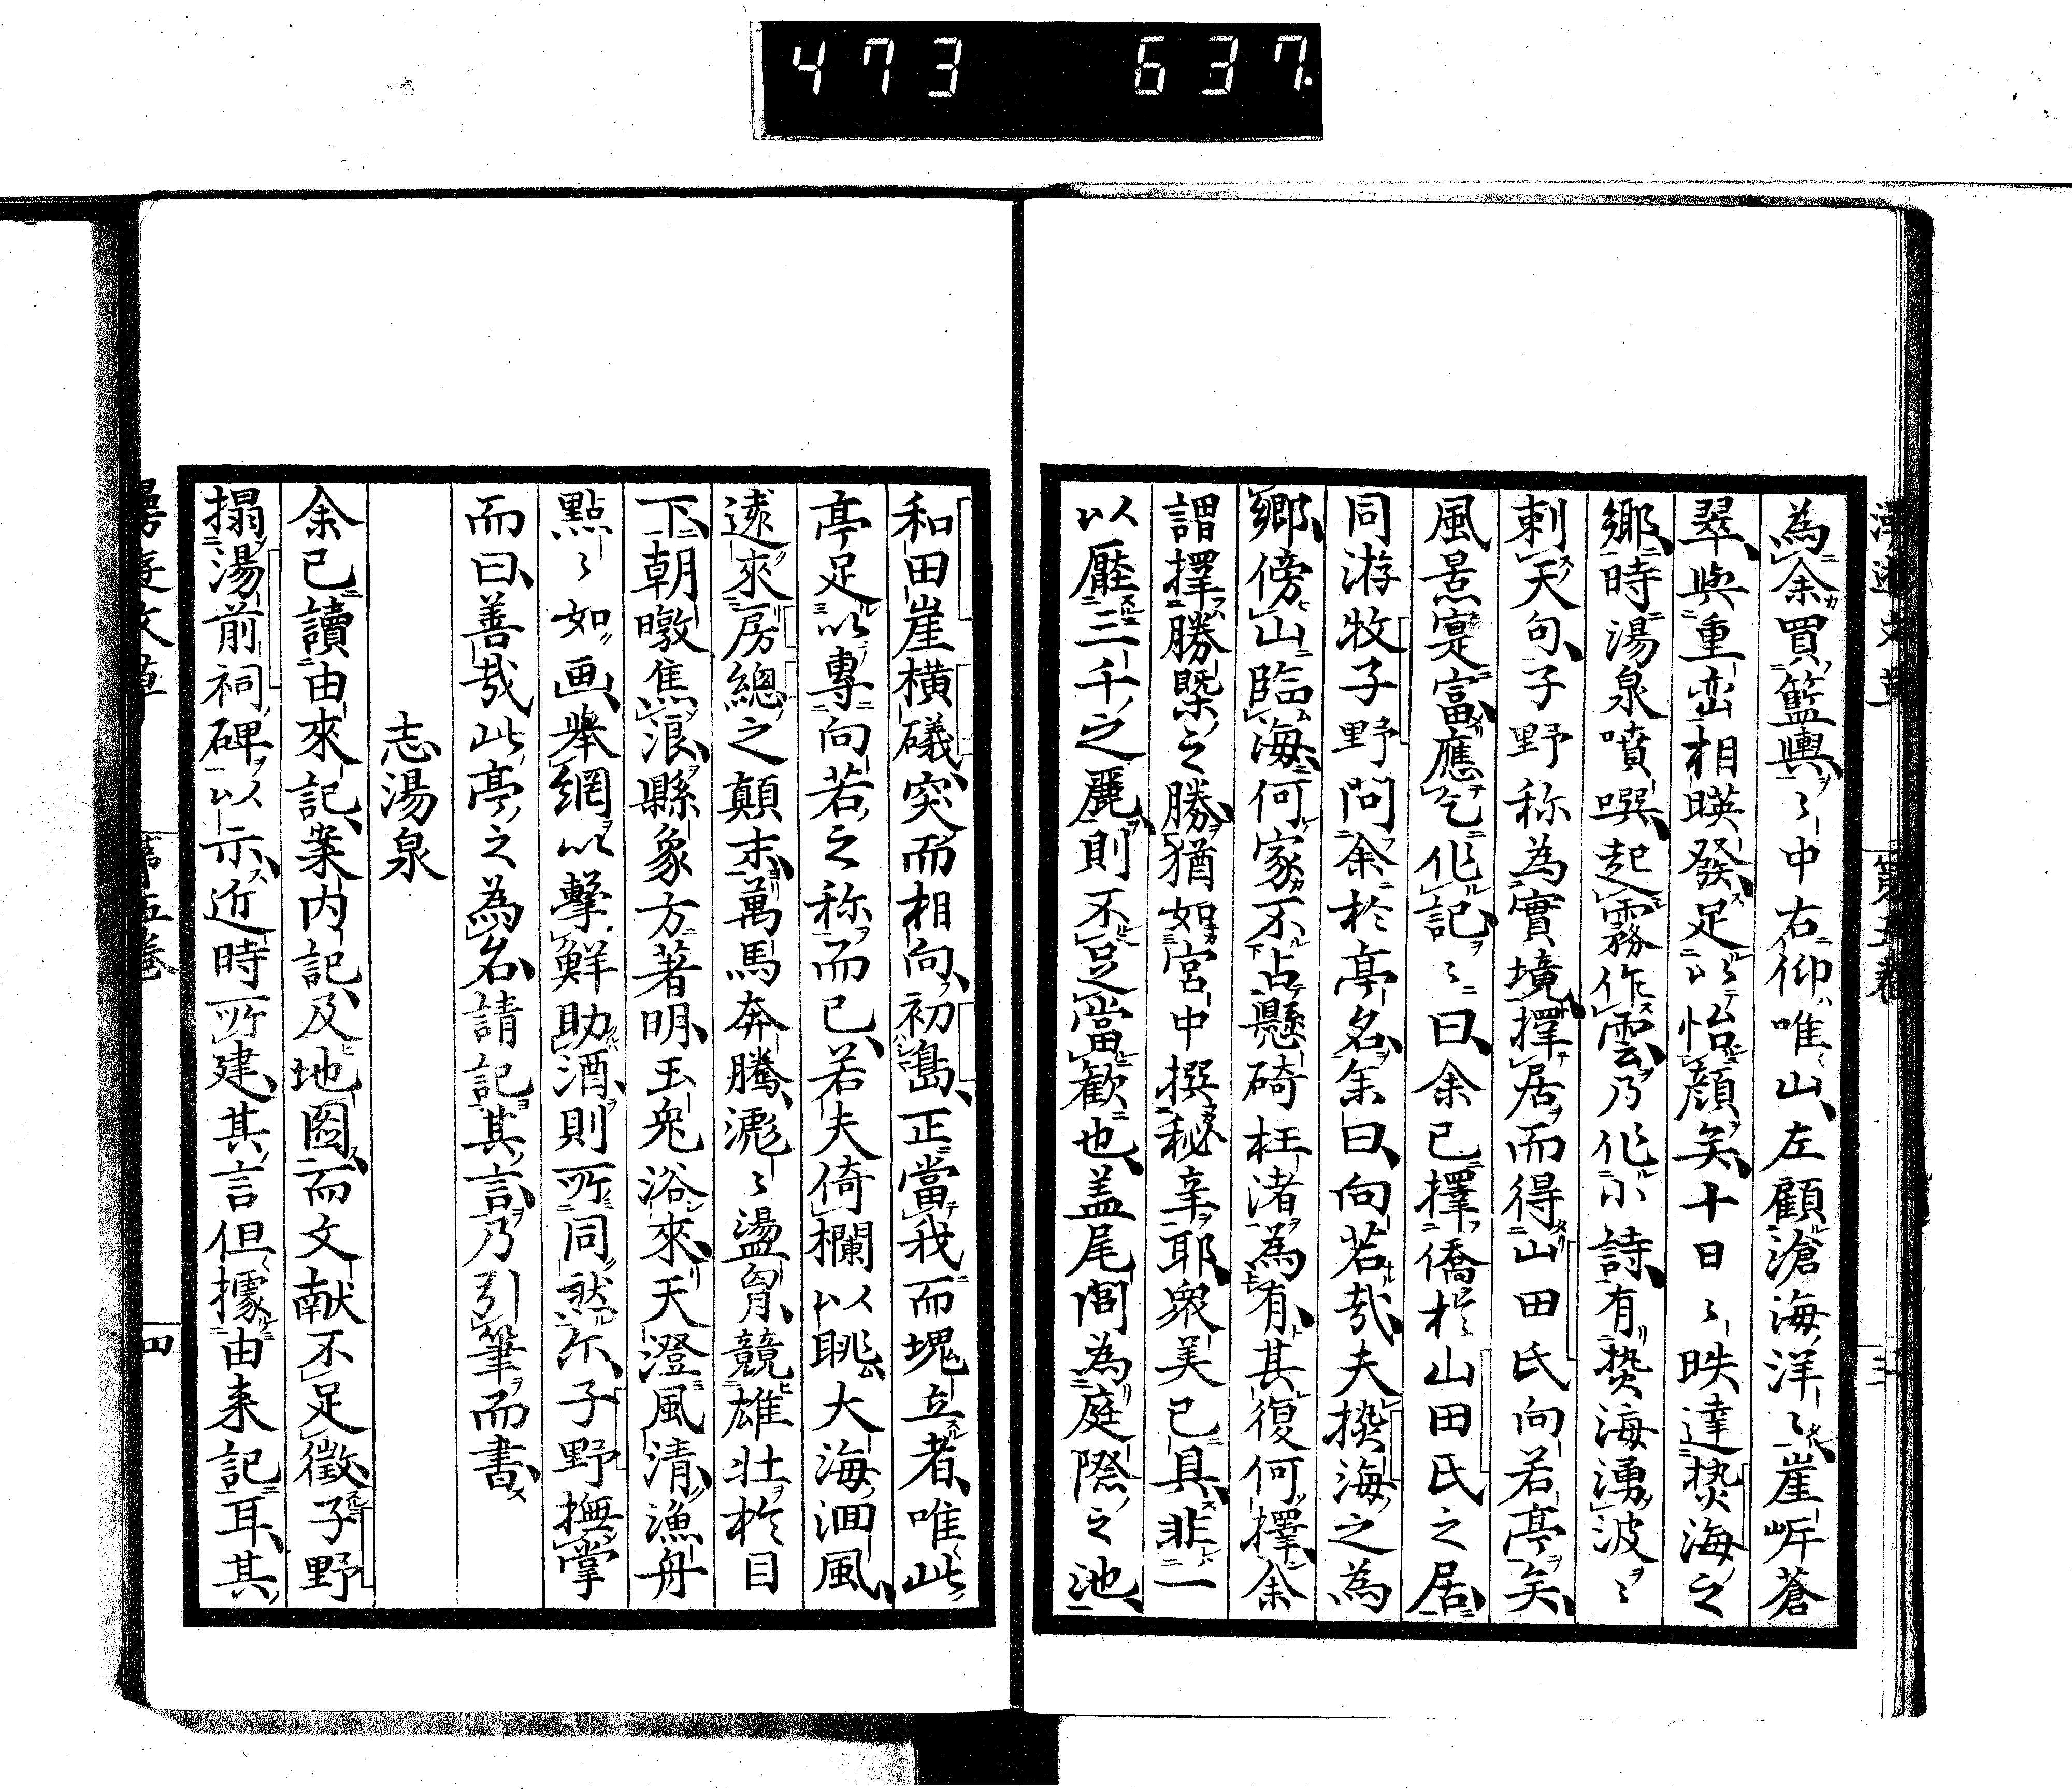 473 637
為余買籃輿〻中右仰唯山左顧滄海洋〻崖㟁蒼
翠與重巒相暎發足以怡顔矣十日〻昳達𤍠海之
鄉時湯泉噴噀起霧作雲乃作小詩有𤍠海湧波〻
刺天句子野称為實境擇居而得山田氏向若亭矣
風景寔富應乞作記〻曰余已擇僑於山田氏之居
同游牧子野問余於亭名余曰向若哉夫𤍠海之為
鄉傍山臨海何家不占懸碕枉渚為有其復何擇余
謂擇勝槩之勝猶如宮中撰秘辛耶衆美已具非一
以壓三千之麗則不足當歡也盖尾閭為庭際之池
和田崖横礒突而相向初島正當我而塊立者唯此
亭足以專向若之称而已若夫倚欄以眺大海洄風
逺來房總之顛末萬馬奔騰瀌〻盪胷競雄壮於目
下朝暾焦浪縣象方著明玉兎浴來天澄風清漁舟
點〻如画舉網以擊鮮助酒則所同然尓子野撫掌
而曰善哉此亭之為名請記其言乃引筆而書
志湯泉
余已讀由來記案内記及地圖而文献不足徵子野
搨湯前祠碑以示近時所建其言但據由来記耳其
第五卷
四